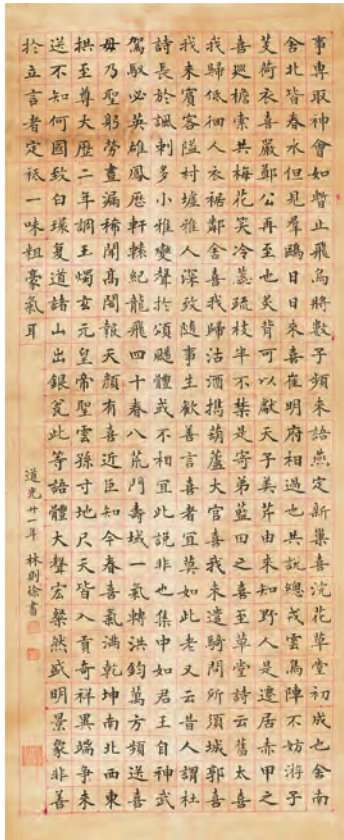 事專取神會如暫止飛烏將數子頻來語燕定新巢喜浣花草堂初成也舍南
舍北皆春水但見羣鷗日日來喜崔明府相過也共說總戎雲鳥陣不妨游子
芰荷衣喜嚴鄭公再至也炙背可以獻天子美芹由來知野人是遷居赤甲之
喜廵檐索共梅花笑冷蕊疏枝半不禁是寄弟藍田之喜至草堂詩云舊犬喜
我歸低徊入衣裾鄰舍喜我歸沽酒攜葫蘆大官喜我來遣騎問所須城郭喜
我來賓客隘村墟雅人深致隨事生歡善言喜者宜莫如此老又云昔人謂杜
詩長於諷刺多小雅變聲於頌颺體或不相宜此說非也集中如君王自神武
駕馭必英雄鳳歷軒轅紀龍飛四十春八荒開壽域一氣轉洪鈞萬方頻送喜
毋乃聖躬勞晝漏稀聞高閣報天顏有喜近臣知今春喜氣滿乾坤南北西東
拱至尊大歷二年調玉燭玄元皇帝聖雲孫寸地尺天皆入貢奇祥異瑞爭來
送不知何國致白環复道諸山出銀瓮此等語體大聲宏粲然盛明景象非善
於立言者定祇一味粗豪氣耳
道光廿一年 林則徐書